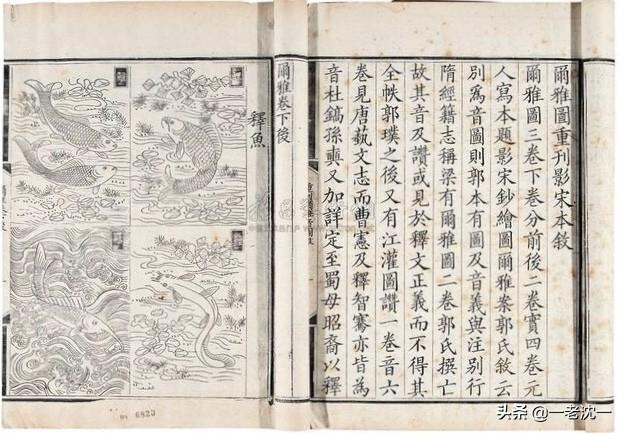 爾雅圖重刊影宋本敘
爾雅圖三卷下卷分前後二卷實四卷元
人寫本題影宋鈔繪圖爾雅案郭氏敘云
別爲音圖則郭本有圖及音義與注別行
隋經籍志稱梁有爾雅圖二卷郭氏撰亡
故其音及讚或見於釋文正義而不得其
全帙郭璞之後又有江灌圖讚一卷音六
卷見唐藝文志而曹憲及釋智騫亦皆爲
音杜鎬孫奭又加詳定至蜀毋昭裔以釋
爾雅卷下後
釋魚
6823
头条 @一老沈一